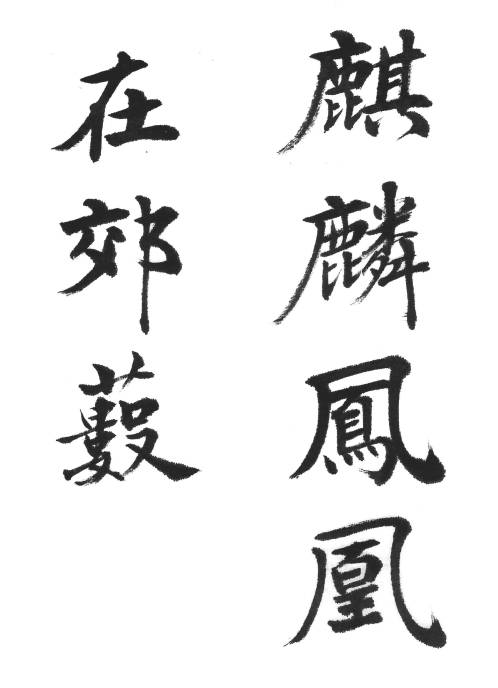 麒麟鳳凰
在郊藪